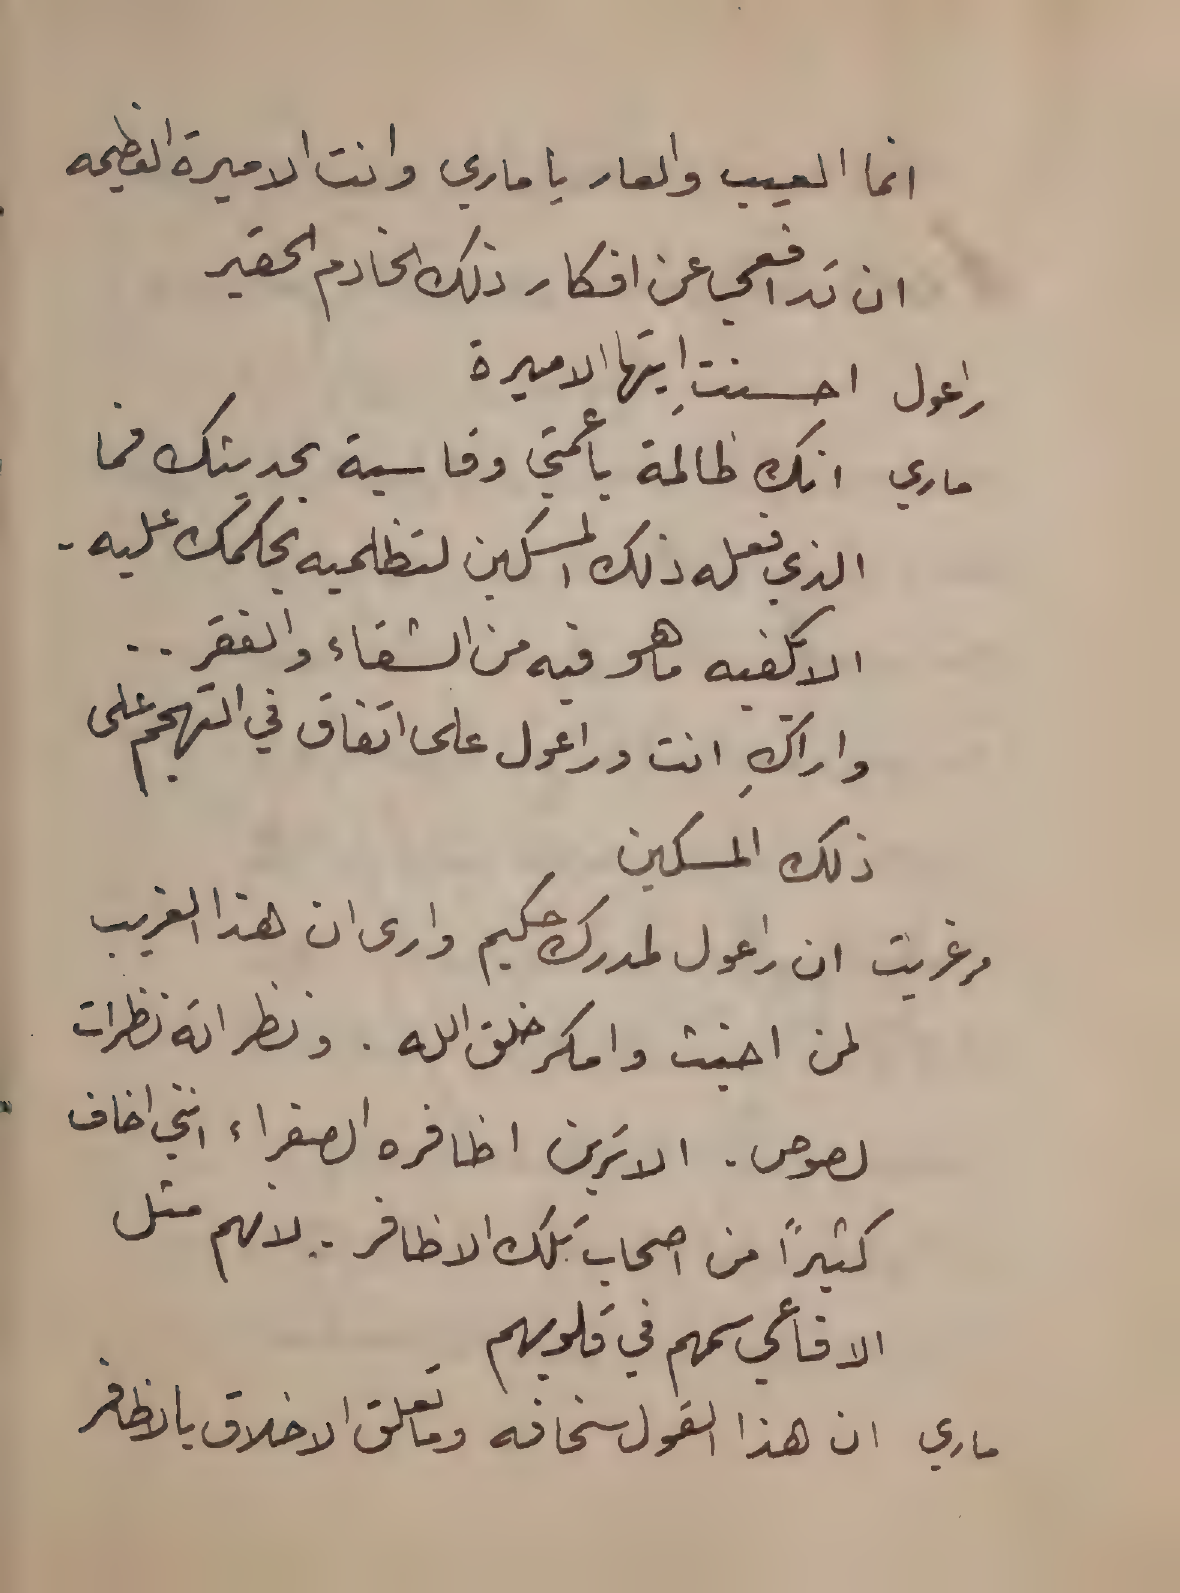 انما العيب والعار يا ماري وانت الاميرة العظيمه
ان تدافعي عن افكار ذلك الخادم الحقير
راعول احسنتِ ايتها الاميرة
ماري انك ظالمة يا عمتي وقاسية بحديثك فما
الذي فعله ذلك المسكين لتظلميه بحكمك عليه -
الا تكفيه ما هو فيه من الشقاء والفقر ..
واراكِ انت وراعول على اتفاق في التهجم على
ذلك المسكين
مرغريت ان راعول لمدرك حكيم وارى ان هذا الغريب
لمن اخبث وامكر خلق الله . ونظراته نظرات
لصوص . الا ترين اظافره الصفراء انني اخاف
كثيراً من اصحاب تلك الاظافر .. لانهم مثل
الافاعي سمهم في قلوبهم
ماري ان هذا القول سخافه وما تعلق الاخلاق بالاظافر